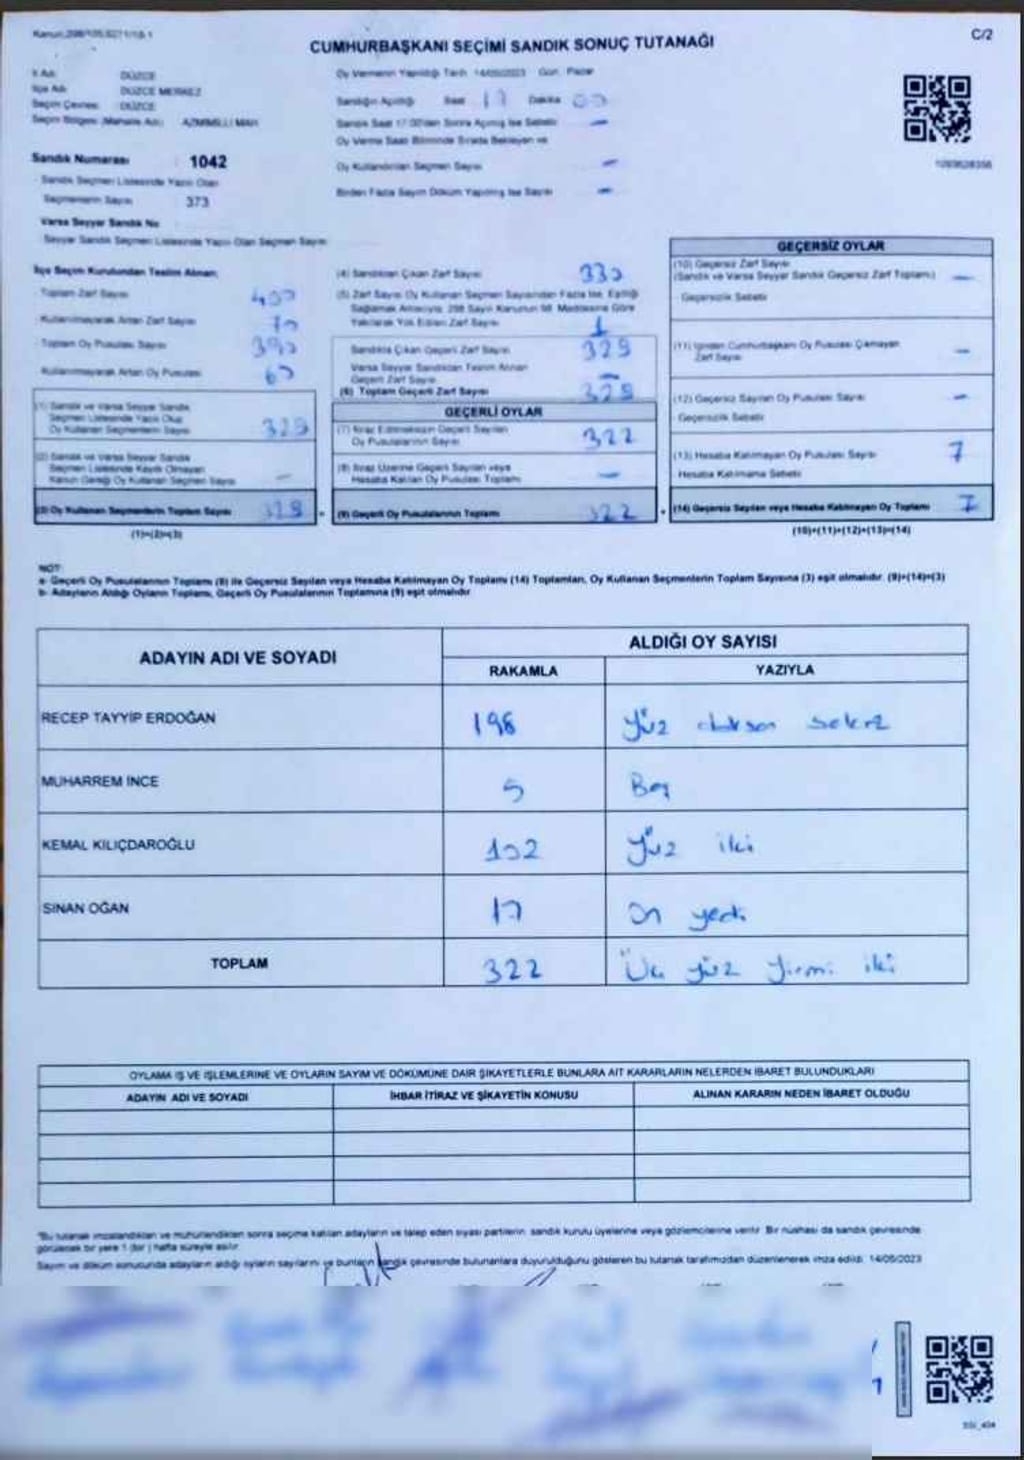 C/2
CUMHURBAŞKANI SEÇİMİ SANDIK SONUÇ TUTANAĞI
İl Adı: DÜZCE
İlçe Adı DÜZCE MERKEZ
Seçim Çevresi: DÜZCE
Seçim Bölgesi (Mahalle Adı)
Oy Vermenin Yapıldığı Tarih 14/05/2023 Gün: Pazar
Sandığın Açıldığı Saat 17 Dakika 00
Sandık Saat 17:00'dan Sonra Açılmış İse Sebebi —
Oy Verme Saati Bitiminde Sırada Bekleyen ve
Oy Kullandırılan Seçmen Sayısı —
Birden Fazla Sayım Döküm Yapılmış İse Sayısı —
Sandık Numarası 1042
Sandık Seçmen Listesinde Yazılı Olan
Seçmenlerin Sayısı 373
Varsa Seyyar Sandık No
Seyyar Sandık Seçmen Listesinde Yazılı Olan Seçmen Sayısı
İlçe Seçim Kurulundan Teslim Alınan;
Toplam Zarf Sayısı 400
Kullanılmayarak Artan Zarf Sayısı 70
Toplam Oy Pusulası Sayısı 390
Kullanılmayarak Artan Oy Pusulası 60
(1) Sandık ve Varsa Seyyar Sandık
Seçmen Listesinde Yazılı Olup
Oy Kullanan Seçmenlerin Sayısı 329
(2) Sandık ve Varsa Seyyar Sandık
Seçmen Listesinde Kayıtlı Olmayan
Kanun Gereği Oy Kullanan Seçmen Sayısı —
(3) Oy Kullanan Seçmenlerin Toplam Sayısı 329
(1)+(2)=(3)
(4) Sandıktan Çıkan Zarf Sayısı 330
(5) Zarf Sayısı Oy Kullanan Seçmen Sayısından Fazla İse, Eşitliği
Sağlamak Amacıyla; 298 Sayılı Kanunun 98. Maddesine Göre
Yakılarak Yok Edilen Zarf Sayısı 1
Sandıkta Çıkan Geçerli Zarf Sayısı 329
Varsa Seyyar Sandıktan Teslim Alınan
Geçerli Zarf Sayısı —
(6) Toplam Geçerli Zarf Sayısı 329
GEÇERLİ OYLAR
(7) İtiraz Edilmeksizin Geçerli Sayılan
Oy Pusulalarının Sayısı 322
(8) İtiraz Üzerine Geçerli Sayılan veya
Hesaba Katılan Oy Pusulası Toplamı —
(9) Geçerli Oy Pusulalarının Toplamı 322
GEÇERSİZ OYLAR
(10) Geçersiz Zarf Sayısı
(Sandık ve Varsa Seyyar Sandık Geçersiz Zarf Toplamı) —
Geçersizlik Sebebi
(11) İçinden Cumhurbaşkanı Oy Pusulası Çıkmayan
Zarf Sayısı —
(12) Geçersiz Sayılan Oy Pusulası Sayısı —
Geçersizlik Sebebi
(13) Hesaba Katılmayan Oy Pusulası Sayısı 7
Hesaba Katılmama Sebebi
(14) Geçersiz Sayılan veya Hesaba Katılmayan Oy Toplamı 7
(10)+(11)+(12)+(13)=(14)
NOT:
a- Geçerli Oy Pusulalarının Toplamı (9) ile Geçersiz Sayılan veya Hesaba Katılmayan Oy Toplamı (14) Toplamları, Oy Kullanan Seçmenlerin Toplam Sayısına (3) eşit olmalıdır. (9)+(14)=(3)
b- Adayların Aldığı Oyların Toplamı, Geçerli Oy Pusulalarının Toplamına (9) eşit olmalıdır.
ADAYIN ADI VE SOYADI ALDIĞI OY SAYISI
RAKAMLA YAZIYLA
RECEP TAYYİP ERDOĞAN 198 Yüz doksan sekiz
MUHARREM İNCE 5 Beş
KEMAL KILIÇDAROĞLU 102 Yüz iki
SİNAN OĞAN 17 On yedi
TOPLAM 322 Üç yüz yirmi iki
OYLAMA İŞ VE İŞLEMLERİNE VE OYLARIN SAYIM VE DÖKÜMÜNE DAİR ŞİKAYETLERLE BUNLARA AİT KARARLARIN NELERDEN İBARET BULUNDUKLARI
ADAYIN ADI VE SOYADI İHBAR İTİRAZ VE ŞİKAYETİN KONUSU ALINAN KARARIN NEDEN İBARET OLDUĞU
*Bu tutanak imzalandıktan ve mühürlendikten sonra seçime katılan adayların ve talep eden siyasi partilerin sandık kurulu üyelerine veya gözlemcilerine verilir. Bir nüshası da sandık çevresinde
görülecek bir yere 1 (bir) hafta süreyle asılır.
Sayım ve döküm sonucunda adayların aldığı oyların sayılarını ve bunların sandık çevresinde bulunanlara duyurulduğunu gösteren bu tutanak tarafımızdan düzenlenerek imza edildi. 14/05/2023